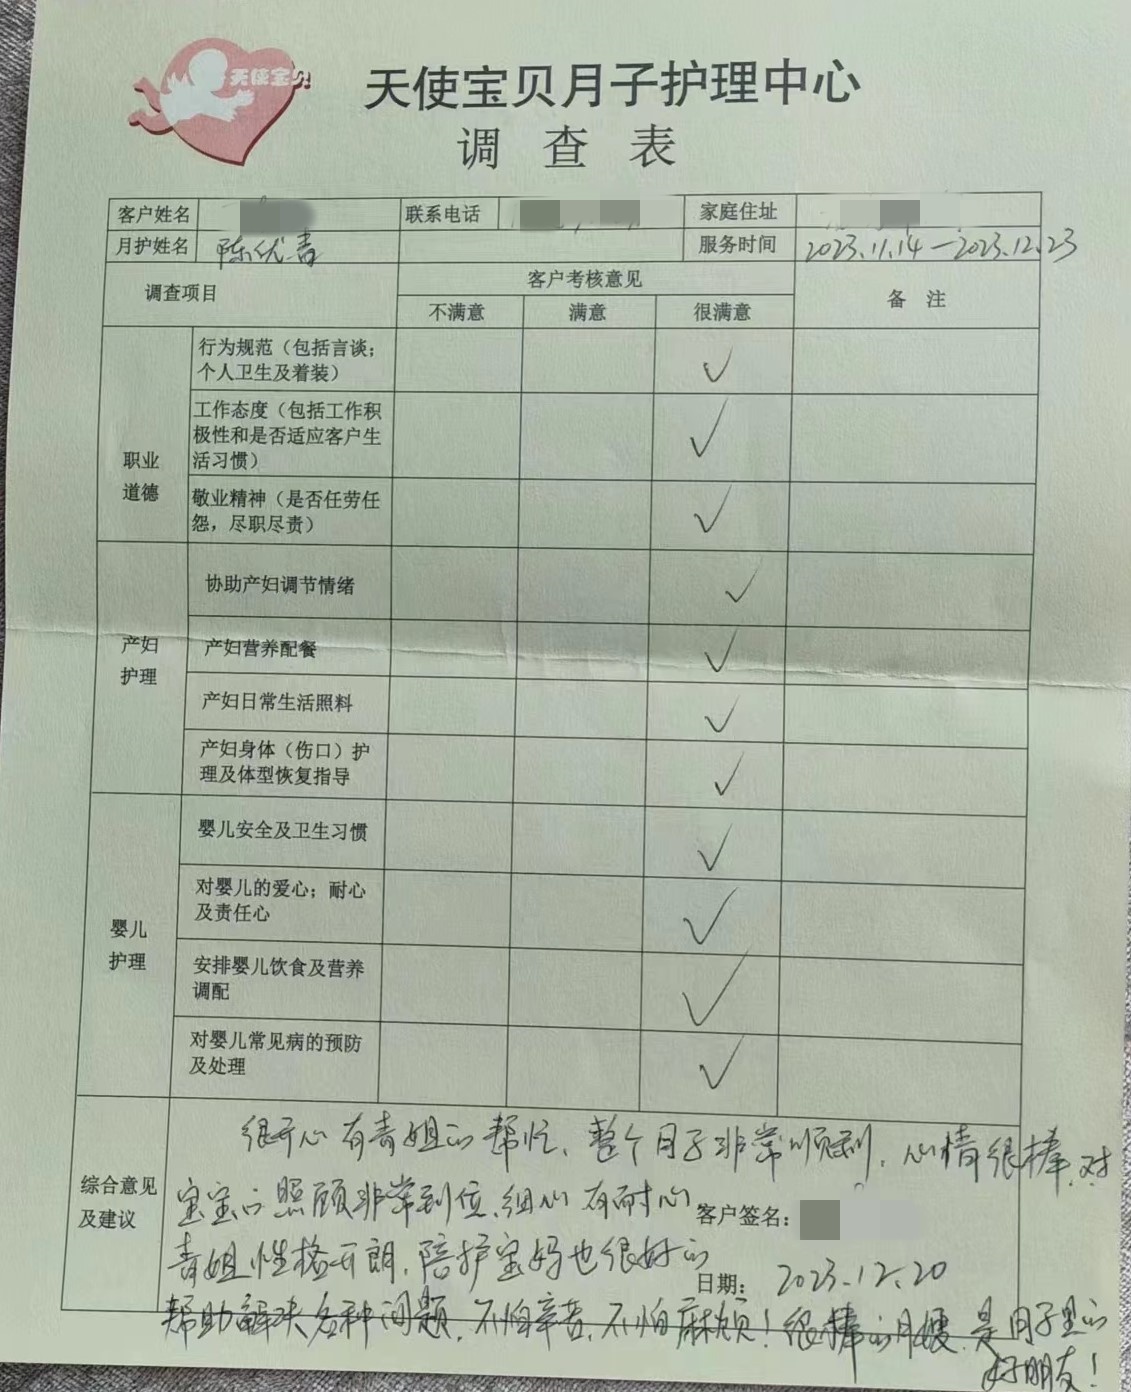 天使宝贝
天使宝贝月子护理中心
调查表
客户姓名 联系电话 家庭住址
月护姓名 陈优青 服务时间 2023.11.14—2023.12.23
调查项目 客户考核意见 备注
不满意 满意 很满意
职业
道德
行为规范（包括言谈；
个人卫生及着装） ✓
工作态度（包括工作积
极性和是否适应客户生
活习惯） ✓
敬业精神（是否任劳任
怨，尽职尽责） ✓
产妇
护理
协助产妇调节情绪 ✓
产妇营养配餐 ✓
产妇日常生活照料 ✓
产妇身体（伤口）护
理及体型恢复指导 ✓
婴儿
护理
婴儿安全及卫生习惯 ✓
对婴儿的爱心；耐心
及责任心 ✓
安排婴儿饮食及营养
调配 ✓
对婴儿常见病的预防
及处理 ✓
综合意见
及建议
很开心有青姐的帮忙、整个月子非常顺利，心情很棒，对
宝宝的照顾非常到位、细心有耐心
客户签名：
青姐性格开朗，陪护宝妈也很好的
日期： 2023.12.20
帮助解决各种问题，不怕辛苦，不怕麻烦！很棒的月嫂，是月子里的
好朋友！